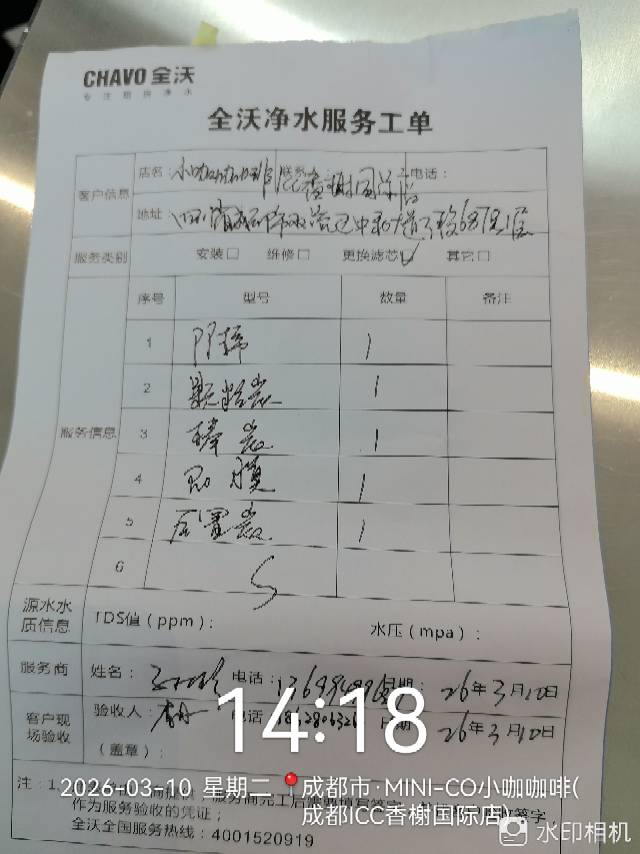 CHAVO 全沃
专注厨房净水
全沃净水服务工单
客户信息
店名：小咖咖啡 香榭国际店 电话：
地址：
服务类别 安装□ 维修□ 更换滤芯☑ 其它□
服务信息
序号 型号 数量 备注
1 阻垢 1
2 颗粒炭 1
3 棒炭 1
4 RO膜 1
5 后置炭 1
6
源水水质信息 TDS值（ppm）： 水压（mpa）：
服务商 姓名： 电话： 日期： 26年3月10日
客户现场验收 验收人： 电话 日期 26年3月10日
（盖章）：
14:18
2026-03-10 星期二 成都市·MINI-CO小咖咖啡(
成都ICC香榭国际店)
注：1
作为服务验收的凭证；
全沃全国服务热线：4001520919
水印相机